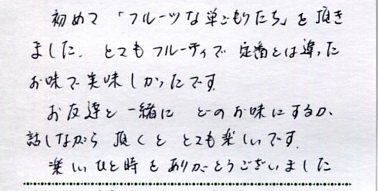 初めて「フルーツな巣ごもりたち」を頂き
ました。とてもフルーティで定番とは違った
お味で美味しかったです。
お友達と一緒に どのお味にするか、
話しながら頂くと とても楽しいです。
楽しいひと時をありがとうございました